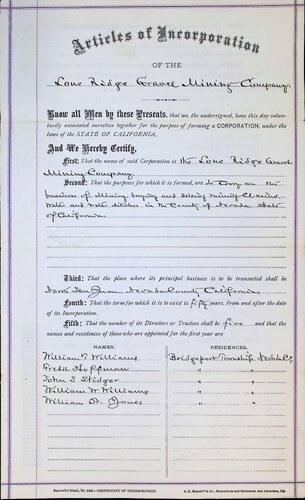 Articles of Incorporation
OF THE
Lone Ridge Gravel Mining Company.
Know all Men by these Presents, that we, the undersigned, have this day voluntarily associated ourselves together for the purpose of forming a CORPORATION, under the
laws of the STATE OF CALIFORNIA,
And We Hereby Certify,
First: That the name of said Corporation is the Lone Ridge Gravel
Mining Company.
Second: That the purpose for which it is formed, are to Carry on the
business of Mining, buying and selling mining Claims,
Water and Water ditches in the County of Nevada State
of California.
Third: That the place where its principal business is to be transacted shall
North San Juan, Nevada County California
Fourth: That the term for which it is to exist is fifty years, from and after the date
of its Incorporation.
Fifth: That the number of its Directors or Trustees shall be five and that the
names and residences of those who are appointed for the first year are
NAMES. RESIDENCES.
William T. Williams Bridgeport Township, Nevada Co
Fredk Hoffman " "
John S Stidger " "
William W Williams " "
William H. Jones " "
CERTIFICATE OF INCORPORATION.